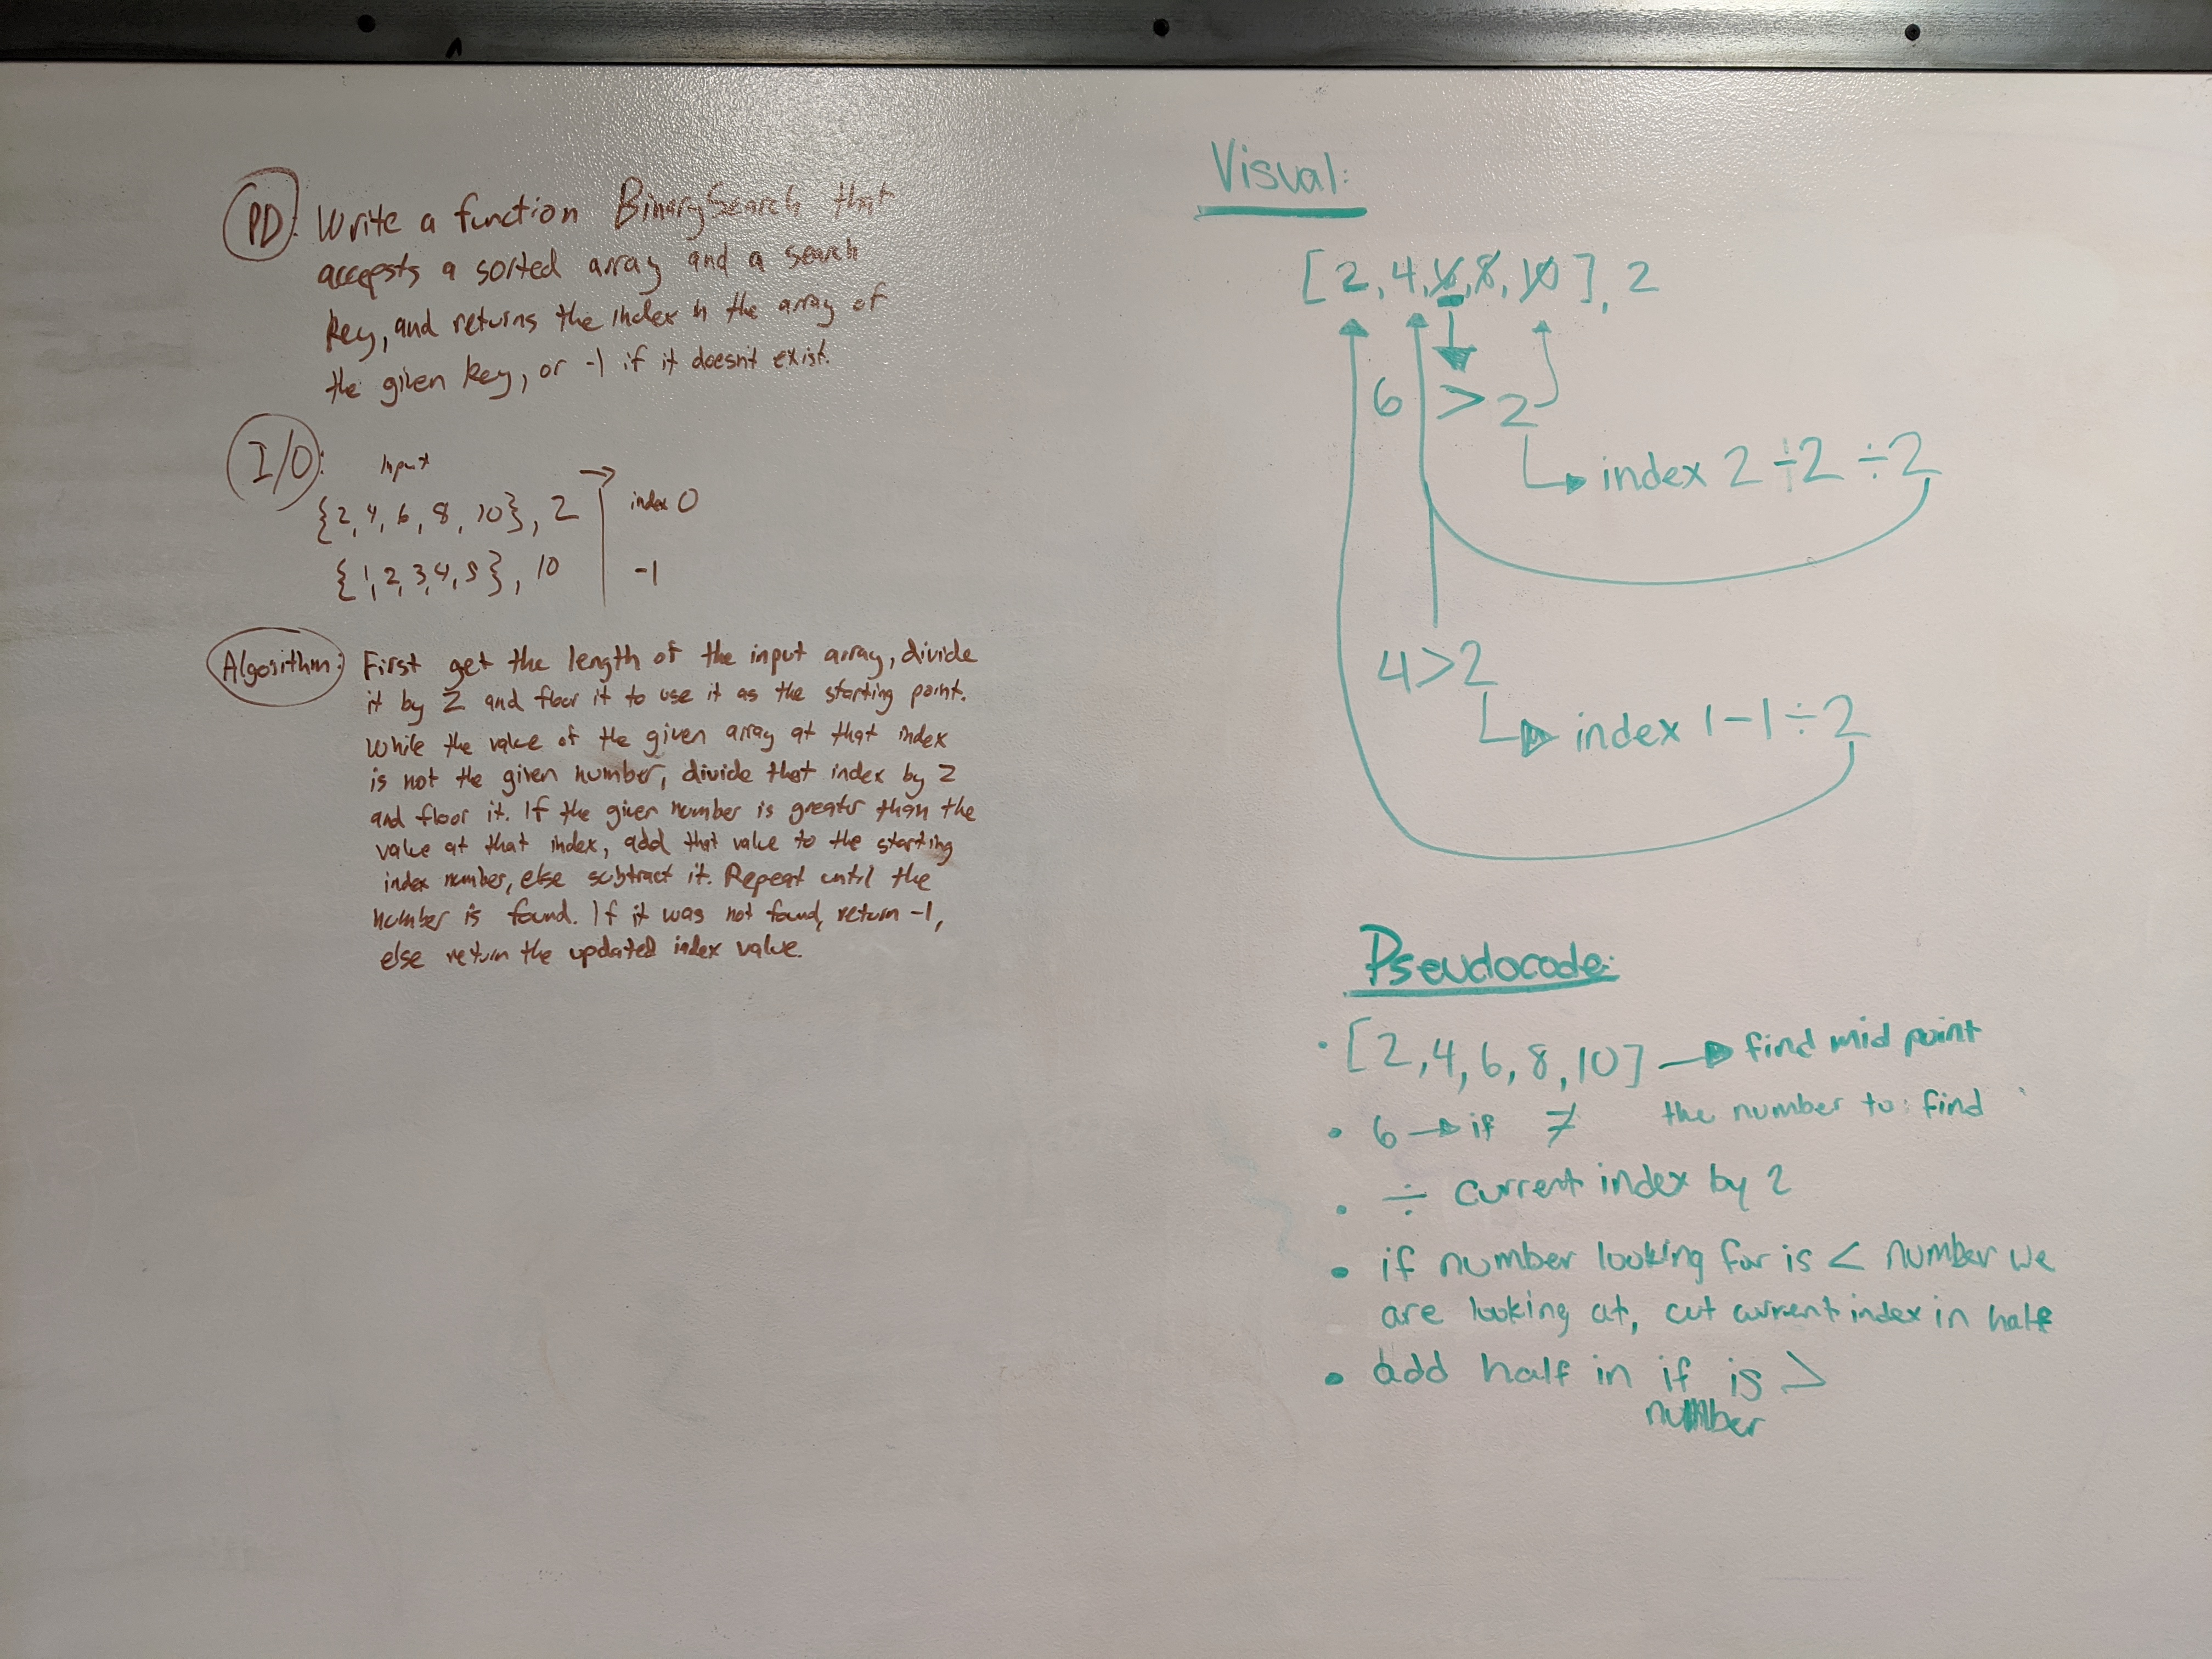 PD: Write a function BinarySearch that
accepsts a sorted array and a search
key, and returns the index in the array of
the given key, or -1 if it doesn't exist.
I/O:
input
{2, 4, 6, 8, 10}, 2 → index 0
{1, 2, 3, 4, 5}, 10 -1
Algorithm: First get the length of the input array, divide
it by 2 and floor it to use it as the starting point.
While the value of the given array at that index
is not the given number, divide that index by 2
and floor it. If the given number is greater than the
value at that index, add that value to the starting
index number, else subtract it. Repeat until the
number is found. If it was not found, return -1,
else return the updated index value.
Visual:
[2, 4, 6, 8, 10], 2
6 > 2
index 2 ÷ 2 ÷ 2
4 > 2
index 1 - 1 ÷ 2
Pseudocode:
• [2, 4, 6, 8, 10] → find mid point
• 6 → if ≠ the number to find
• ÷ current index by 2
• if number looking for is < number we
are looking at, cut current index in half
• add half in if is >
number